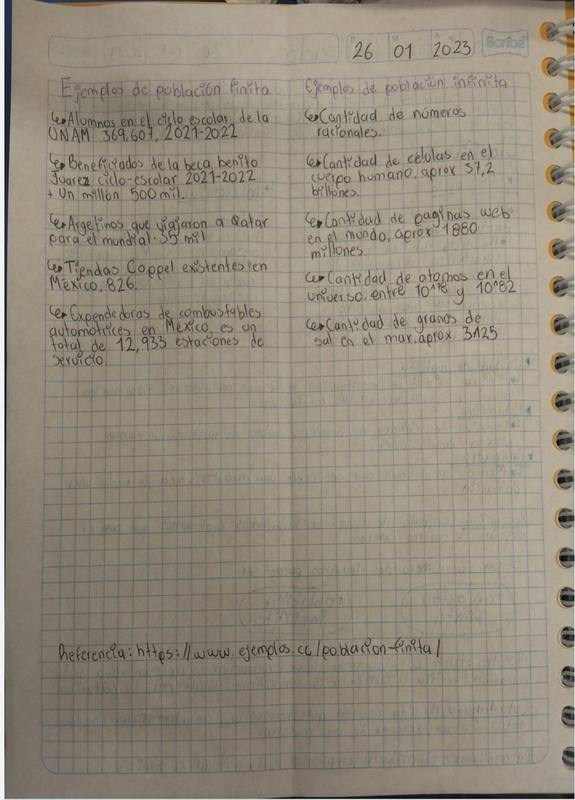 26 01 2023
Scribe
Ejemplos de población finita
Alumnos en el ciclo escolar de la
UNAM 369,607, 2021-2022
Beneficiados de la beca benito
Juarez ciclo-escolar 2021-2022
+ Un millón 500 mil.
Argetinos que viajaron a Qatar
para el mundial. 35 mil
Tiendas Coppel existentes en
México, 826.
Expendedoras de combustables
automotrices en México, es un
total de 12,933 estaciones de
servicio.
Ejemplos de población infinita
Cantidad de números
racionales.
Cantidad de células en el
cuerpo humano, aprox 37,2
billones.
Cantidad de paginas web
en el mundo, aprox 1880
millones.
Cantidad de atomos en el
universo, entre 10^78 y 10^82
Cantidad de granos de
sal en el mar, aprox
Referencia: https://www.ejemplos.cc/poblacion-finita/